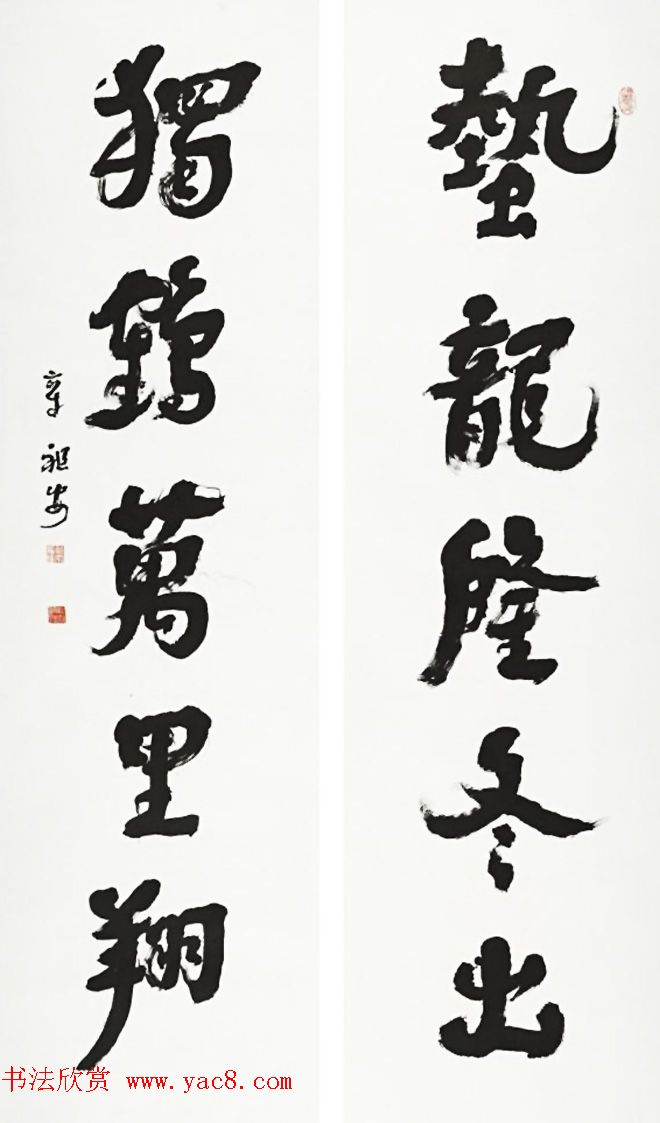 蟄龍隆冬出
獨鶴萬里翔
章祖安
书法欣赏 www.yac8.com